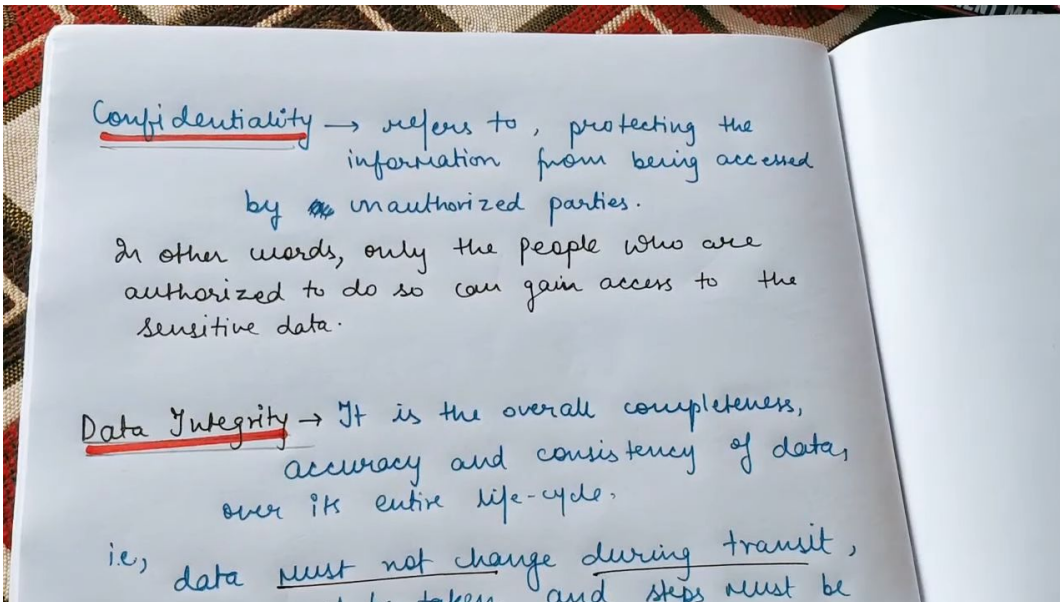 Confidentiality → refers to, protecting the
information from being accessed
by unauthorized parties.
In other words, only the people who are
authorized to do so can gain access to the
sensitive data.
Data Integrity → It is the overall completeness,
accuracy and consistency of data,
over its entire life-cycle.
i.e, data must not change during transit,
taken and steps must be